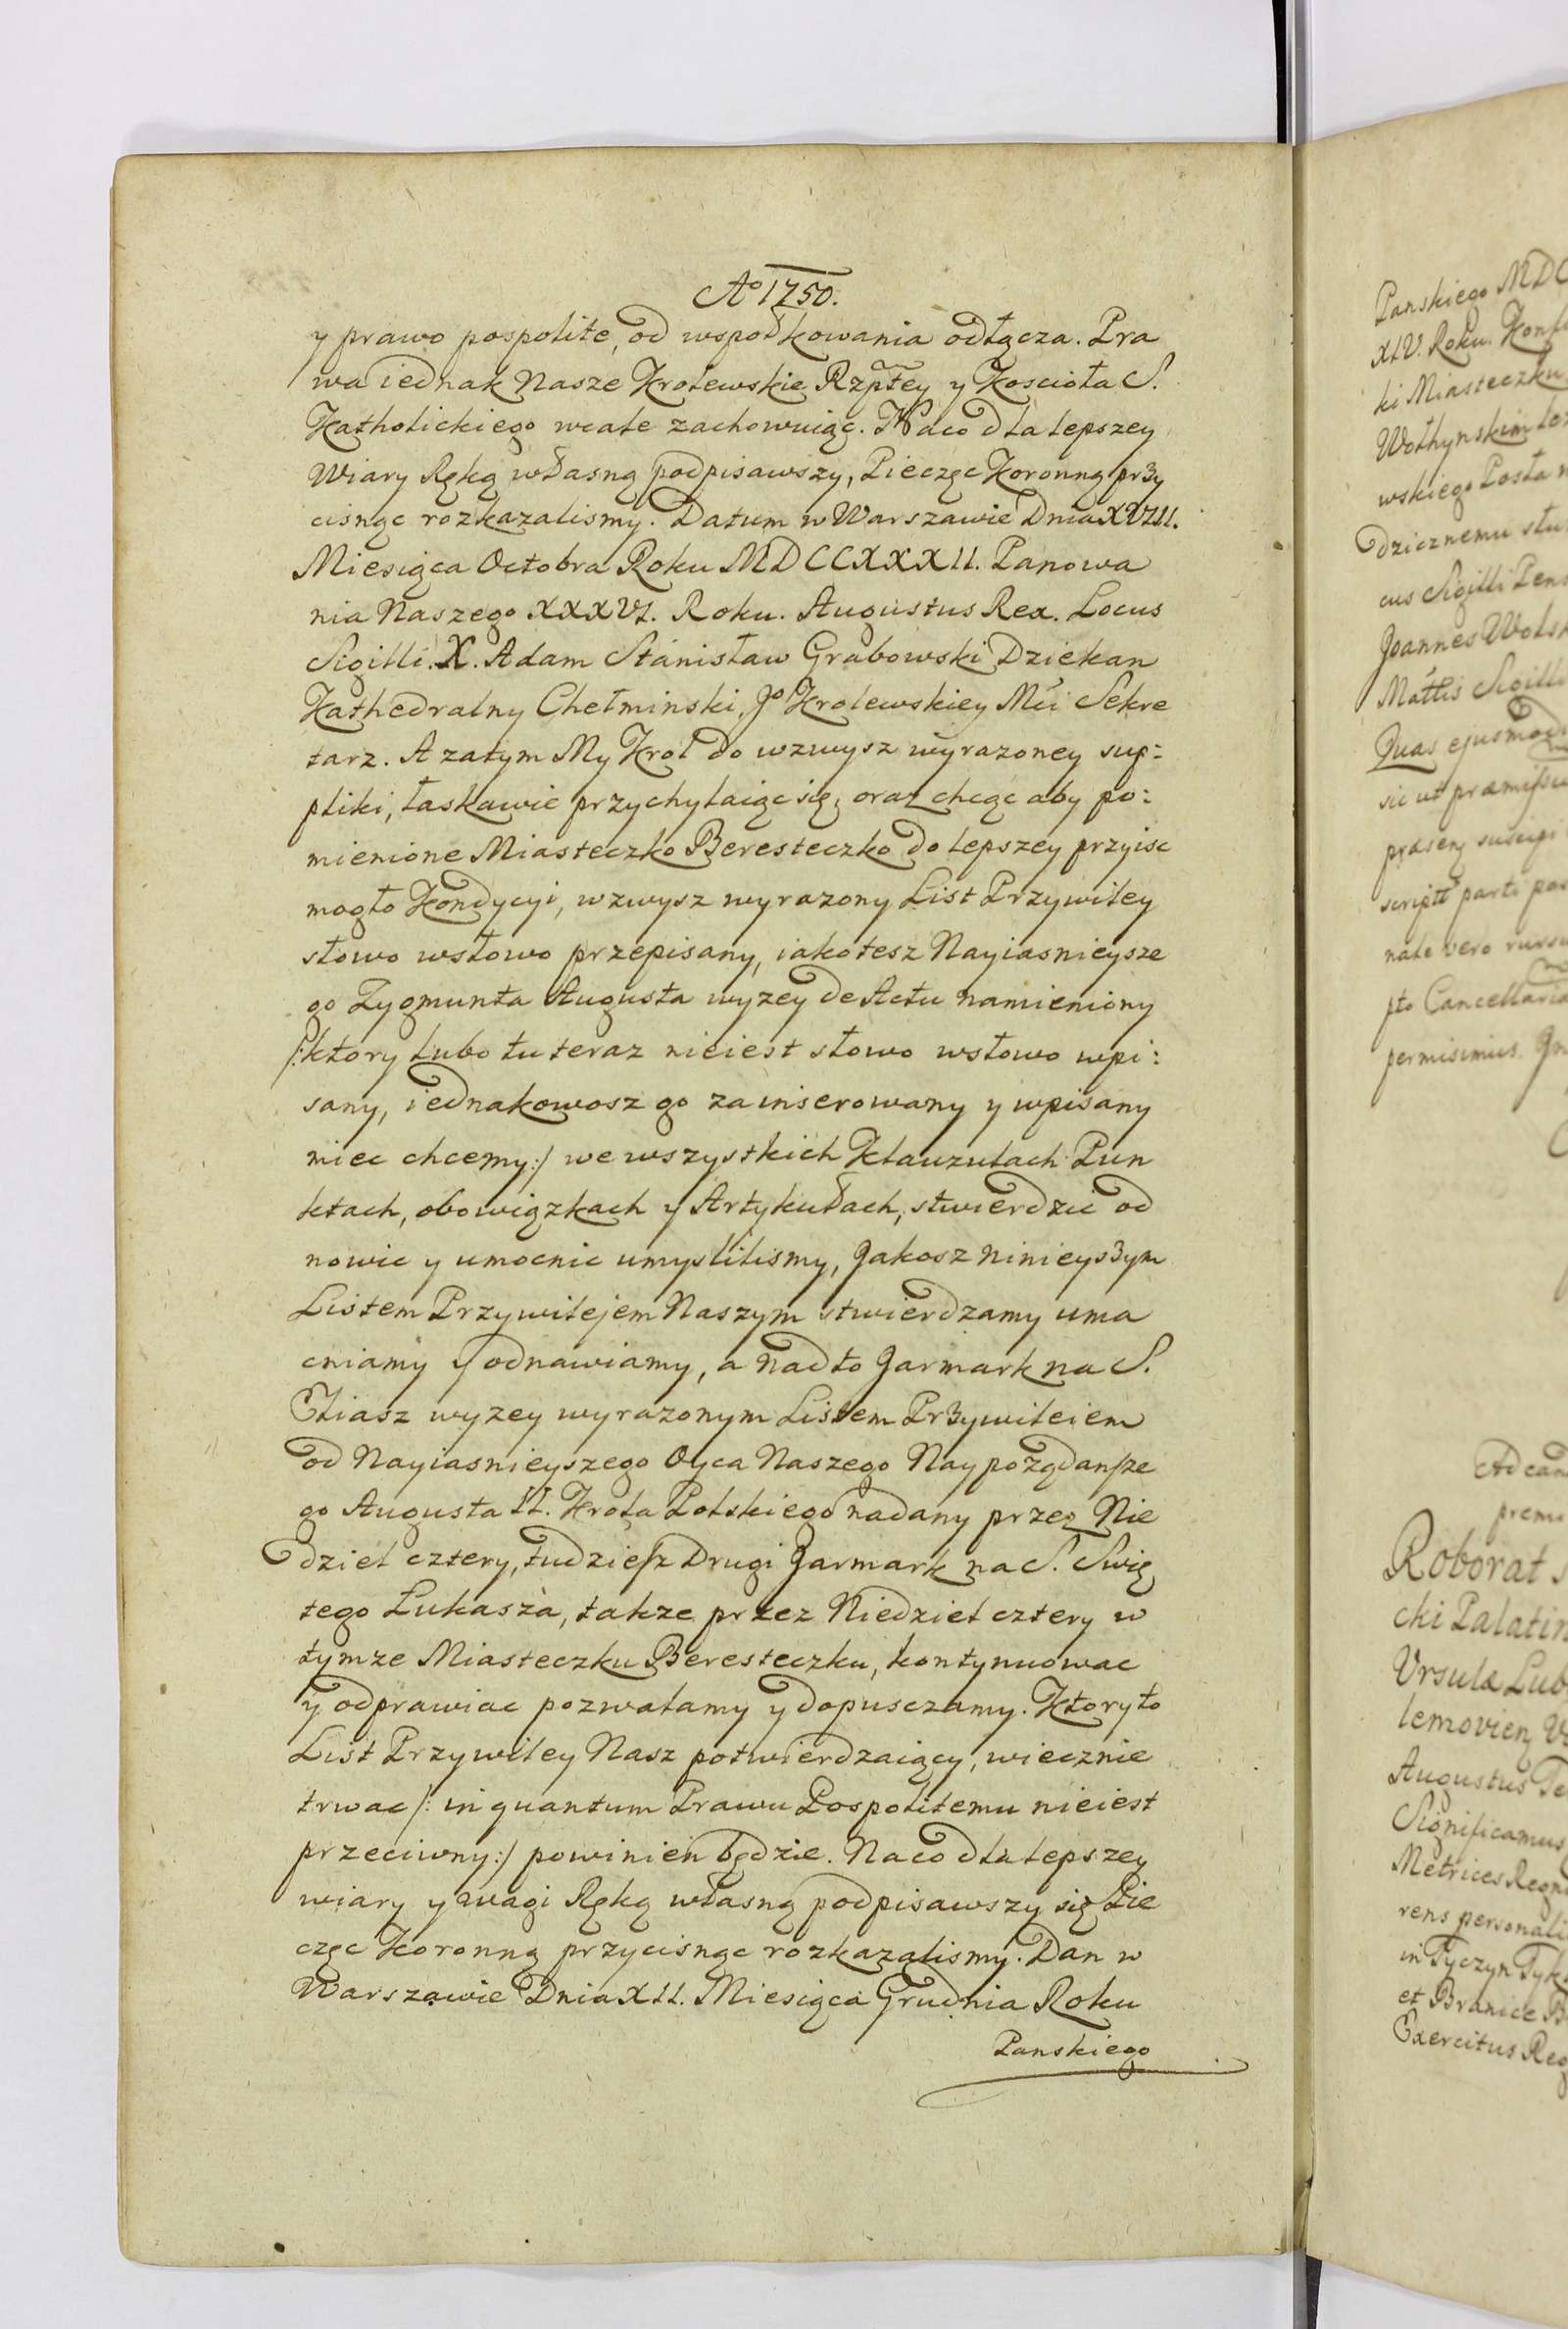 Aº 1750.
y prawo pospolite, od wspołkowania odłącza. Pra
wa iednak Nasze Krolewskie Rzpltey y Koscioła S.
Katholickiego wcale zachowuiąc. Na co dla lepszey
Wiary Ręką własną podpisawszy, Pieczęc Koronną przy
cisnąc rozkazalismy. Datum w Warszawie Dnia XVIII.
Miesiąca Octobra Roku MDCCXXXII. Panowa
nia Naszego XXXVI. Roku. Augustus Rex. Locus
Sigilli. X. Adam Stanisław Grabowski Dziekan
Kathedralny Chełminski, Jº Krolewskiey Mci Sekre
tarz. A zatym My Krol do wzwysz wyrazoney sup:
pliki, łaskawie przychylaiąc się, oraz chcąc aby po:
mienione Miasteczko Beresteczko do lepszey przyisc
mogło Kondycyi, wzwysz wyrazony List Przywiley
słowo wsłowo przepisany, iako tesz Nayiasnieysze
go Zygmunta Augusta wyzey de Actu namieniony
/:ktory lubo tu teraz nieiest słowo wsłowo wpi:
sany, iednakowosz go za inserowany y wpisany
miec chcemy:/ we wszystkich Klauzulach Pun
ktach, obowiązkach y Artykułach, stwierdzic od
nowic y umocnic umyslilismy, Jakosz ninieyszym
Listem Przywilejem Naszym stwierdzamy uma
cniamy y odnawiamy, a nadto Jarmark na S.
Eliasz wyzey wyrazonym Listem Przywileiem
od Nayiasnieyszego Oyca Naszego Naypożądansze
go Augusta II. Krola Polskiego nadany przez Nie
dziel cztery, tudziesz Drugi Jarmark na S. Swię
tego Lukasza, takze przez Niedziel cztery w
tymze Miasteczku Beresteczku, kontynuowac
y odprawiac pozwalamy y dopusczamy. Ktory to
List Przywiley Nasz potwierdzaiący, wiecznie
trwac /: in quantum Prawu Pospolitemu nieiest
przeciwny:/ powinien będzie. Na co dla lepszey
wiary y wagi Ręką własną podpisawszy się Pie
częc Koronną przycisnąc rozkazalismy. Dan w
Warszawie Dnia XII. Miesiąca Grudnia Roku
Panskiego
Panskiego
XLV. Roku.
ki Miasteczku
Wołhynskim
wskiego Posła
dzicznemu
cus Sigilli
Joannes
Mattis Sigilli
Quas ejusmodi
sic ut
parti
nale vero
pto
permisimus.
Roborat
cki
Ursula
Augustus
Significamus
Metrices
rens
in Tyczyn
et Branice
Exercitus